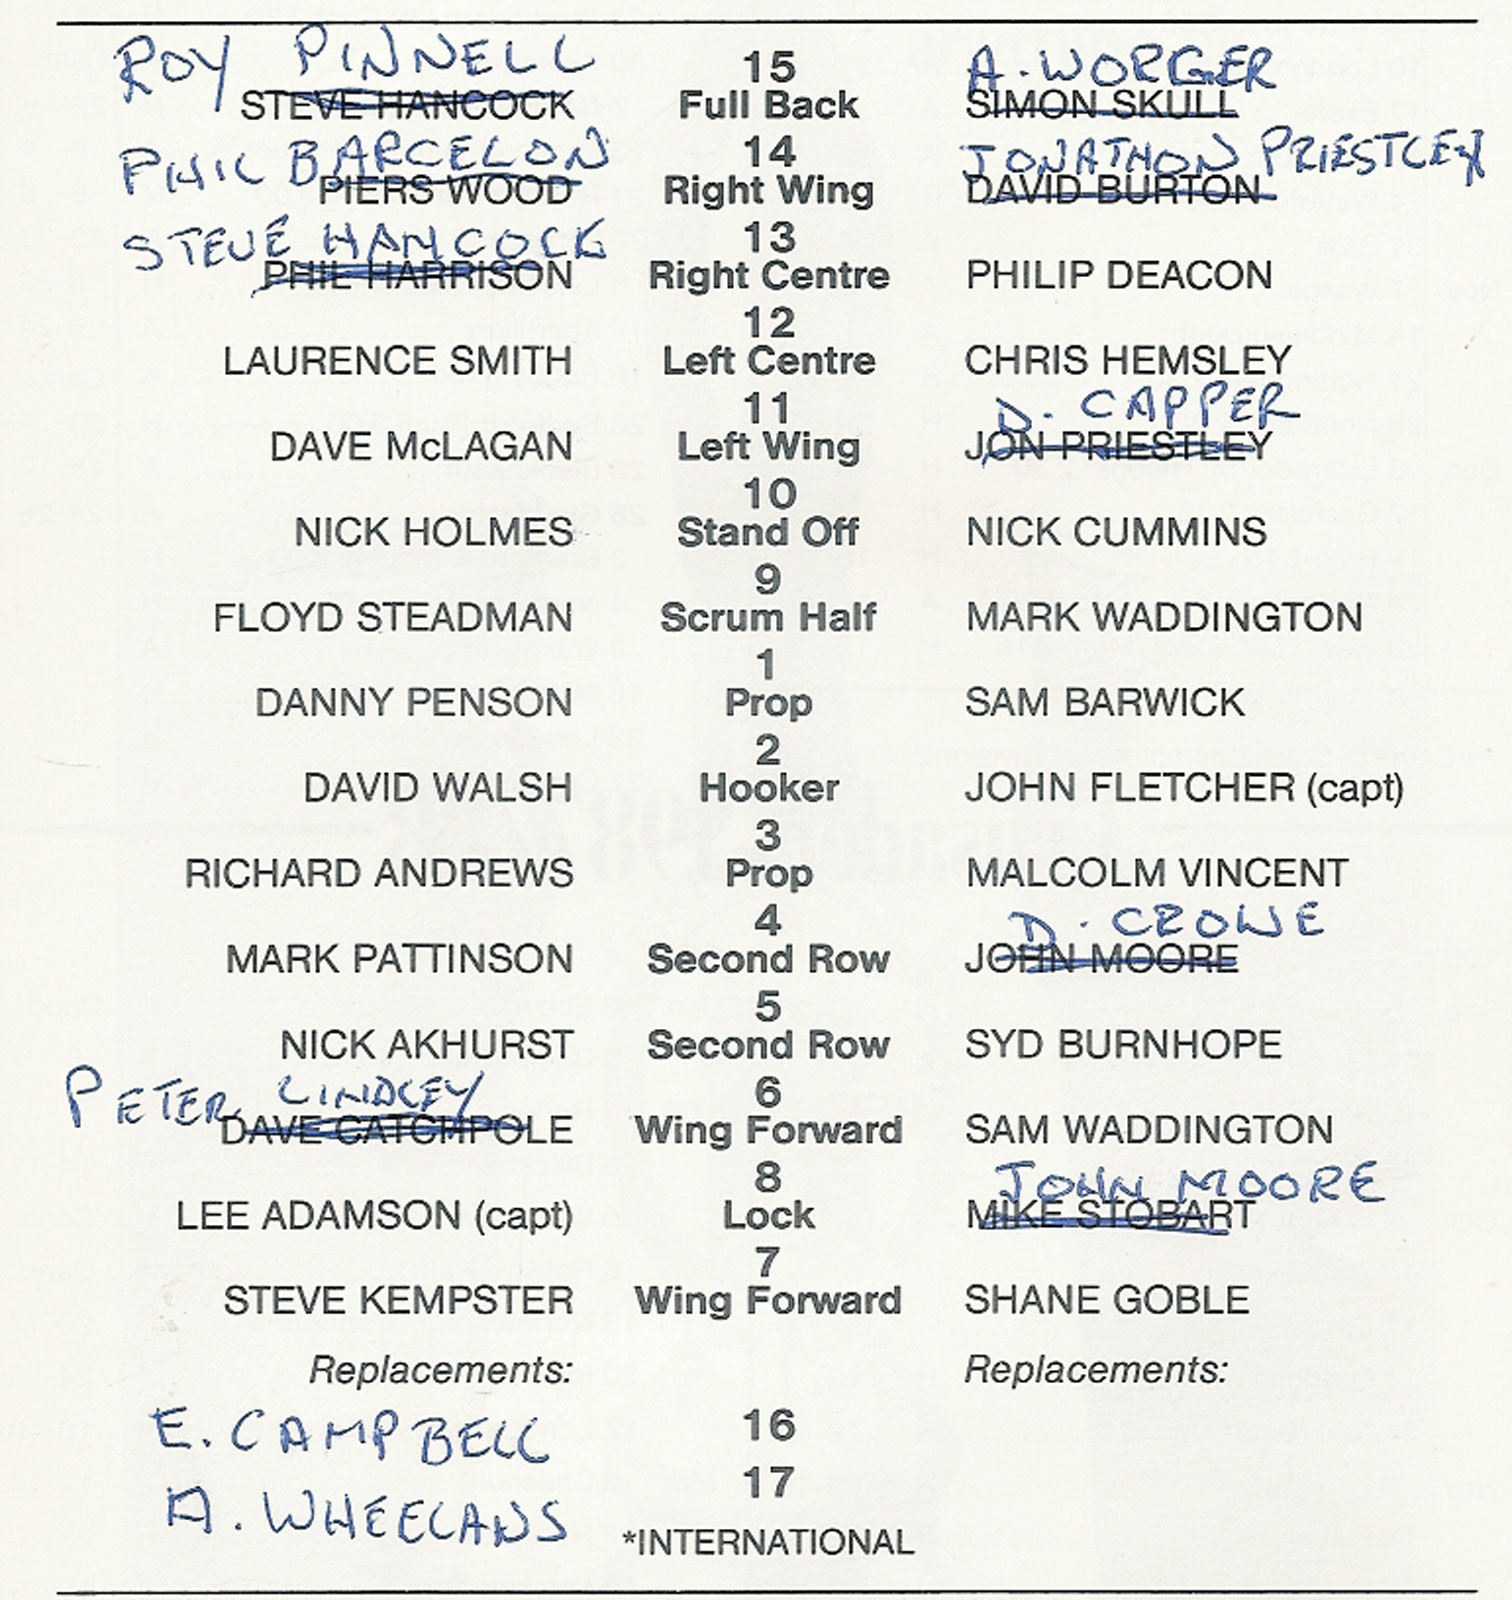 ROY PINNELL 15 A. WORGER
STEVE HANCOCK Full Back SIMON SKULL
PHIL BARCELON 14 JONATHON PRIESTLEY
PIERS WOOD Right Wing DAVID BURTON
STEVE HANCOCK 13
PHIL HARRISON Right Centre PHILIP DEACON
12
LAURENCE SMITH Left Centre CHRIS HEMSLEY
11 D. CAPPER
DAVE McLAGAN Left Wing JON PRIESTLEY
10
NICK HOLMES Stand Off NICK CUMMINS
9
FLOYD STEADMAN Scrum Half MARK WADDINGTON
1
DANNY PENSON Prop SAM BARWICK
2
DAVID WALSH Hooker JOHN FLETCHER (capt)
3
RICHARD ANDREWS Prop MALCOLM VINCENT
4 D. CROWE
MARK PATTINSON Second Row JOHN MOORE
5
NICK AKHURST Second Row SYD BURNHOPE
PETER LINDLEY 6
DAVE CATCHPOLE Wing Forward SAM WADDINGTON
8 JOHN MOORE
LEE ADAMSON (capt) Lock MIKE STOBART
7
STEVE KEMPSTER Wing Forward SHANE GOBLE
Replacements: Replacements:
E. CAMPBELL 16
A. WHEELANS 17
*INTERNATIONAL